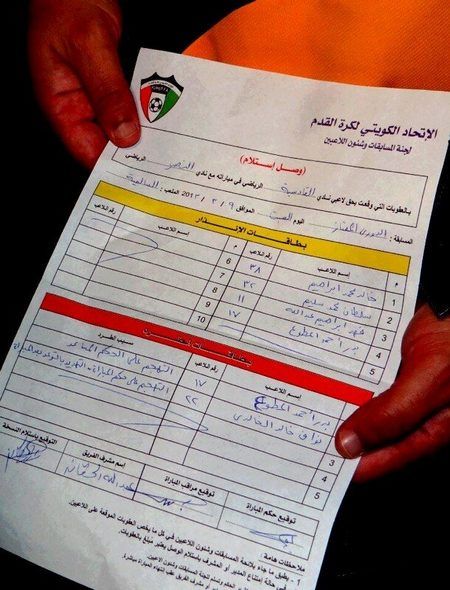 الإتحاد الكويتي لكرة القدم
لجنة المسابقات وشئون اللاعبين
(وصل إستلام)
بالعقوبات التي وقعت بحق لاعبي نادي القادسية الرياضي في مباراته مع نادي النصر الرياضي
المسابقة : الدوري الممتاز اليوم السبت الموافق ٩ / ٣ / ٢٠١٣ الملعب : السالمية
بطاقات الإنذار
م إسم اللاعب رقم اللاعب م إسم اللاعب رقم اللاعب
1 خالد محمد ابراهيم ٣٨ 6
2 سلطان محمد سليم ٣٢ 7
3 فهد ابراهيم عبدالله 11 8
4 بدر أحمد المطوع ١٧ 9
5 10
بطاقات الطرد
م إسم اللاعب رقم اللاعب سبب الطرد
1 بدر أحمد المطوع ١٧ التهجم على الحكم المساعد
2 نواف خالد الخالدي ٢٢ التهجم على حكم المباراة
3
4
5
توقيع حكم المباراة توقيع مراقب المباراة إسم مشرف الفريق التوقيع بإستلام النسخة
ملاحظات هامة :
1 - يطبق ما جاء بلائحة المسابقات وشئون اللاعبين في كل ما يخص العقوبات الموقعة على اللاعبين.
2 - في حالة إمتناع المدير أو المشرف بإستلام الوصل يعتبر مبلغ بالعقوبات.